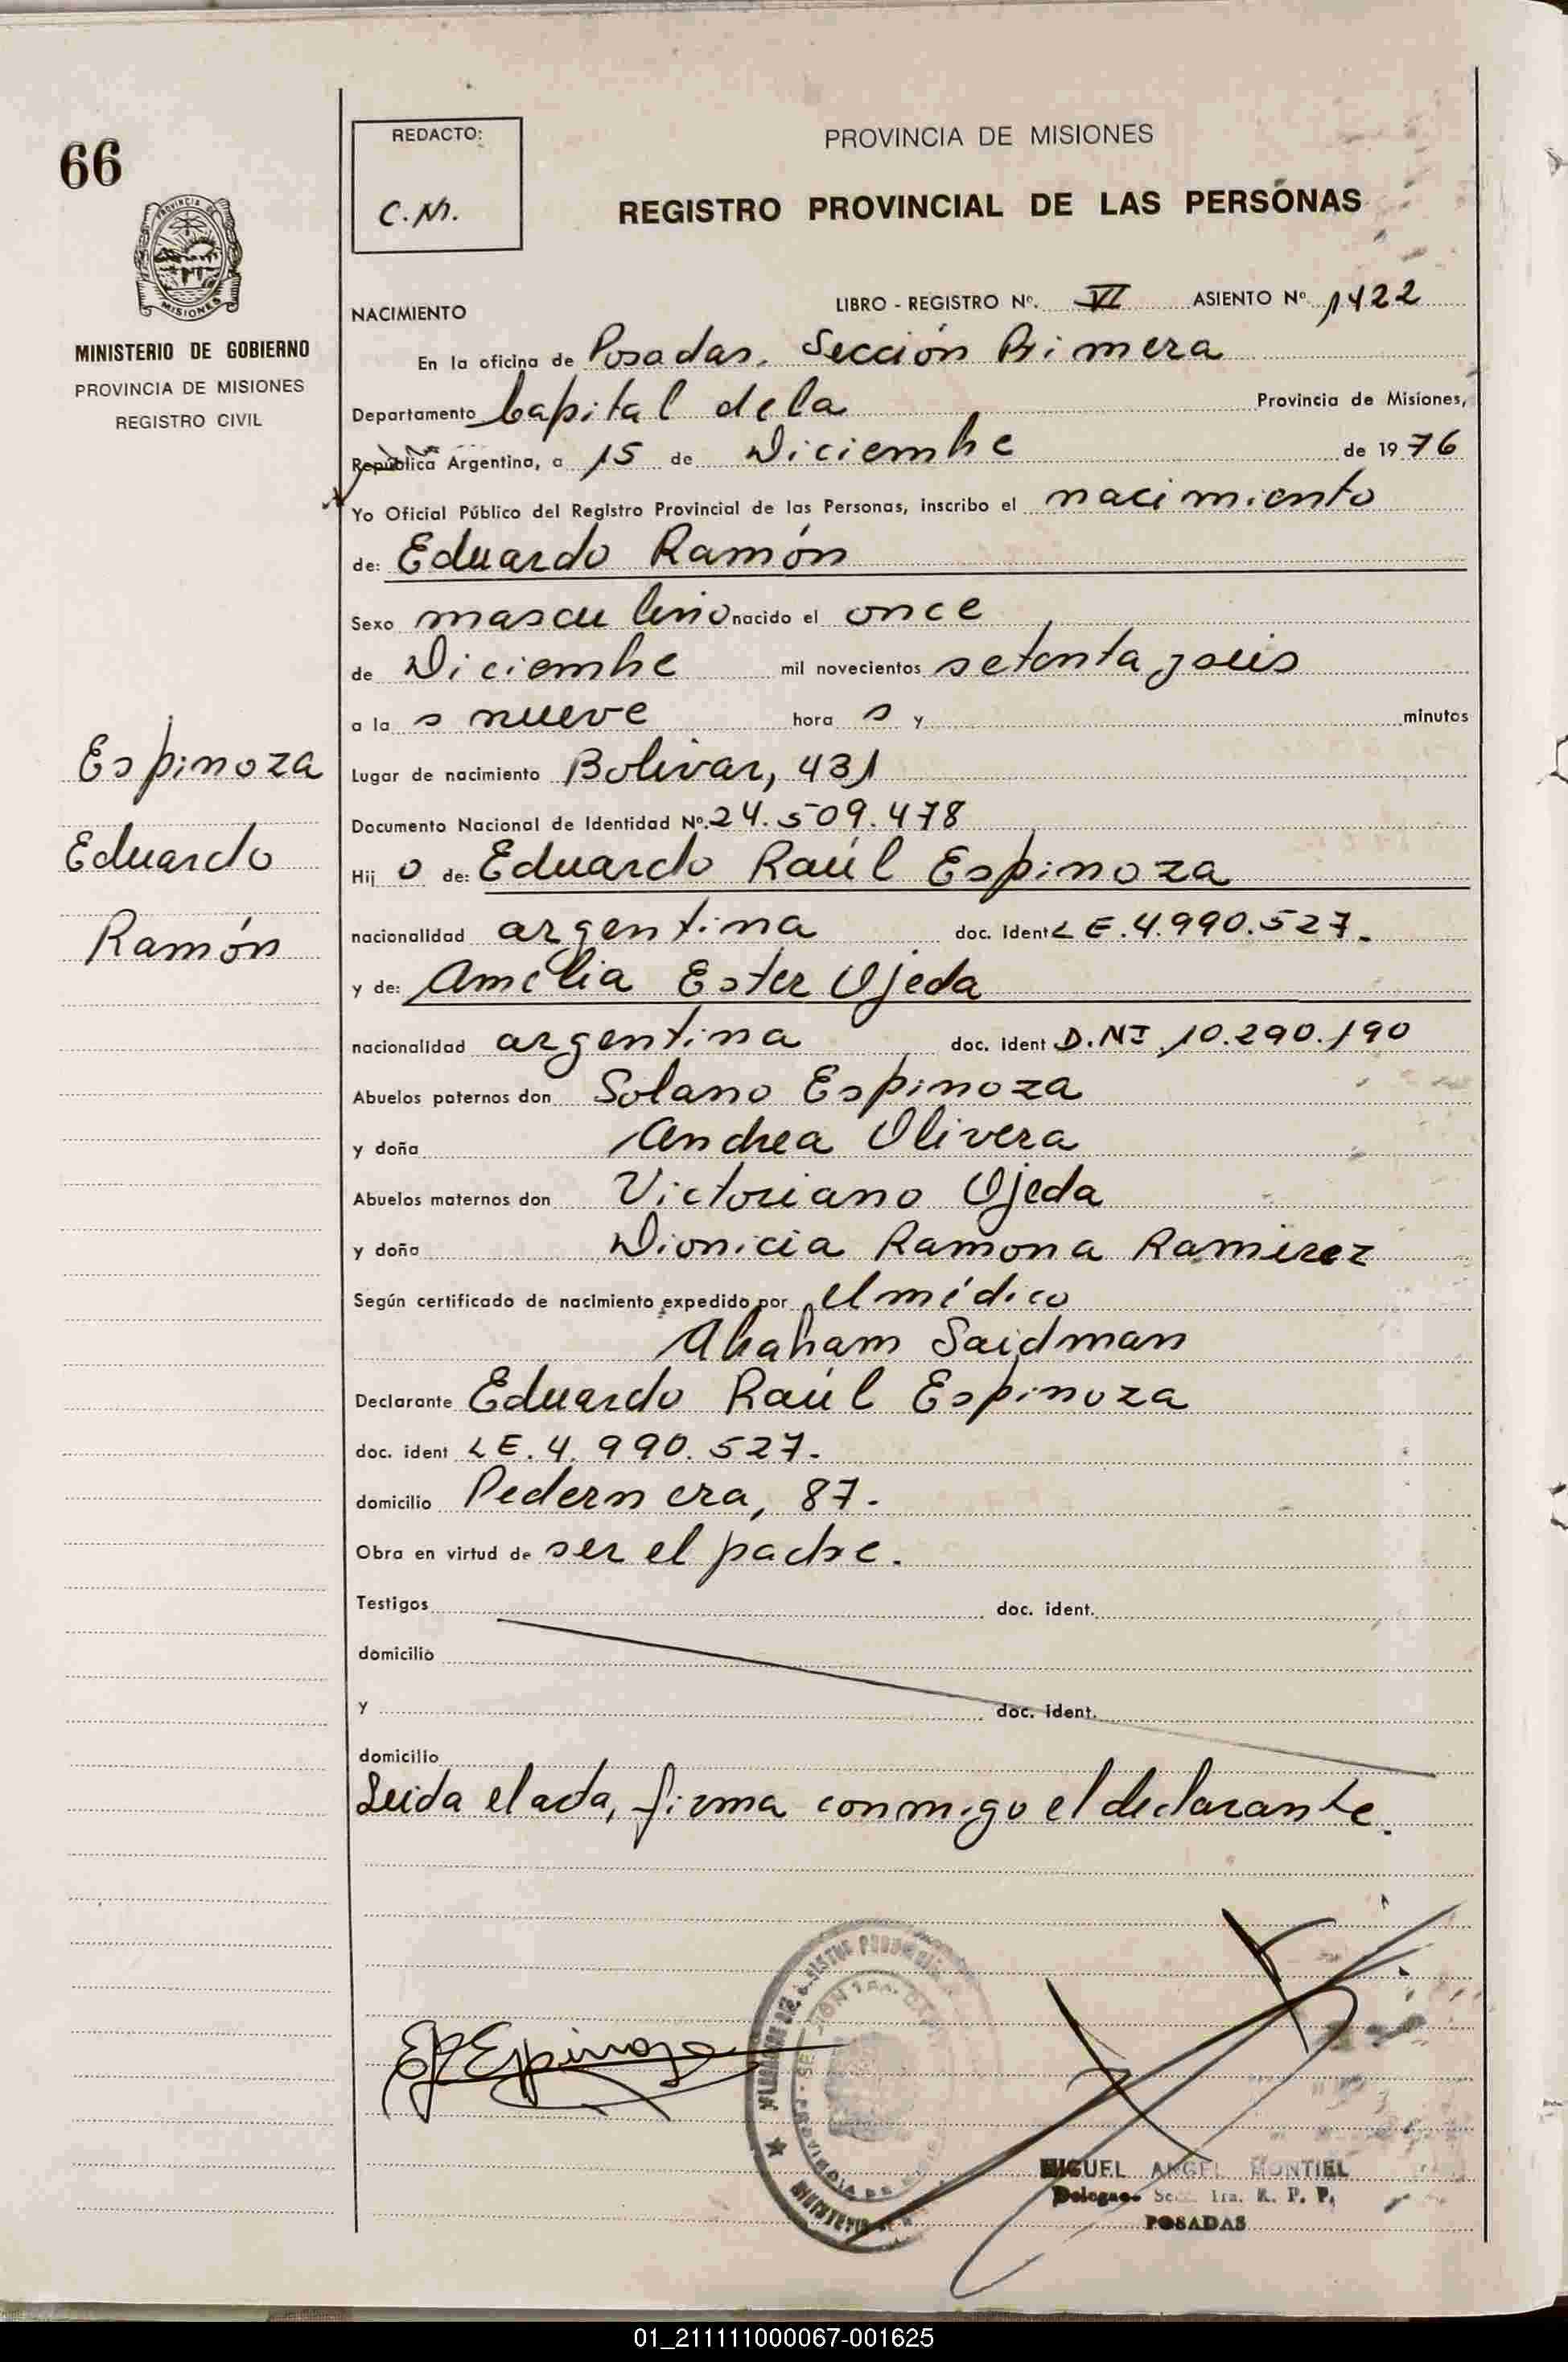 66
PROVINCIA DE
MISIONES
MINISTERIO DE GOBIERNO
PROVINCIA DE MISIONES
REGISTRO CIVIL
Espinoza
Eduardo
Ramón
REDACTO:
C.M.
PROVINCIA DE MISIONES
REGISTRO PROVINCIAL DE LAS PERSONAS
NACIMIENTO LIBRO - REGISTRO Nº. VI ASIENTO Nº 1422
En la oficina de Posadas, Sección Primera
Departamento Capital de la Provincia de Misiones,
República Argentina, a 15 de Diciembre de 1976
Yo Oficial Público del Registro Provincial de las Personas, inscribo el nacimiento
de: Eduardo Ramón
Sexo masculino nacido el once
de Diciembre mil novecientos setenta y seis
a la s nueve hora s y minutos
Lugar de nacimiento Bolivar, 431
Documento Nacional de Identidad Nº. 24.509.478
Hij o de: Eduardo Raúl Espinoza
nacionalidad argentina doc. ident LE. 4.990.527.
y de: Amelia Ester Ojeda
nacionalidad argentina doc. ident D.NI 10.290.190
Abuelos paternos don Solano Espinoza
y doña Andrea Olivera
Abuelos maternos don Victoriano Ojeda
y doña Dionicia Ramona Ramirez
Según certificado de nacimiento expedido por el médico
Abraham Saidman
Declarante Eduardo Raúl Espinoza
doc. ident LE. 4.990.527.
domicilio Pedernera, 87.
Obra en virtud de ser el padre.
Testigos doc. ident.
domicilio
y doc. ident.
domicilio
Leida el acta, firma conmigo el declarante.
Espinoza
MIGUEL ANGEL MONTIEL
1ra. R. P. P.
POSADAS
01_211111000067-001625